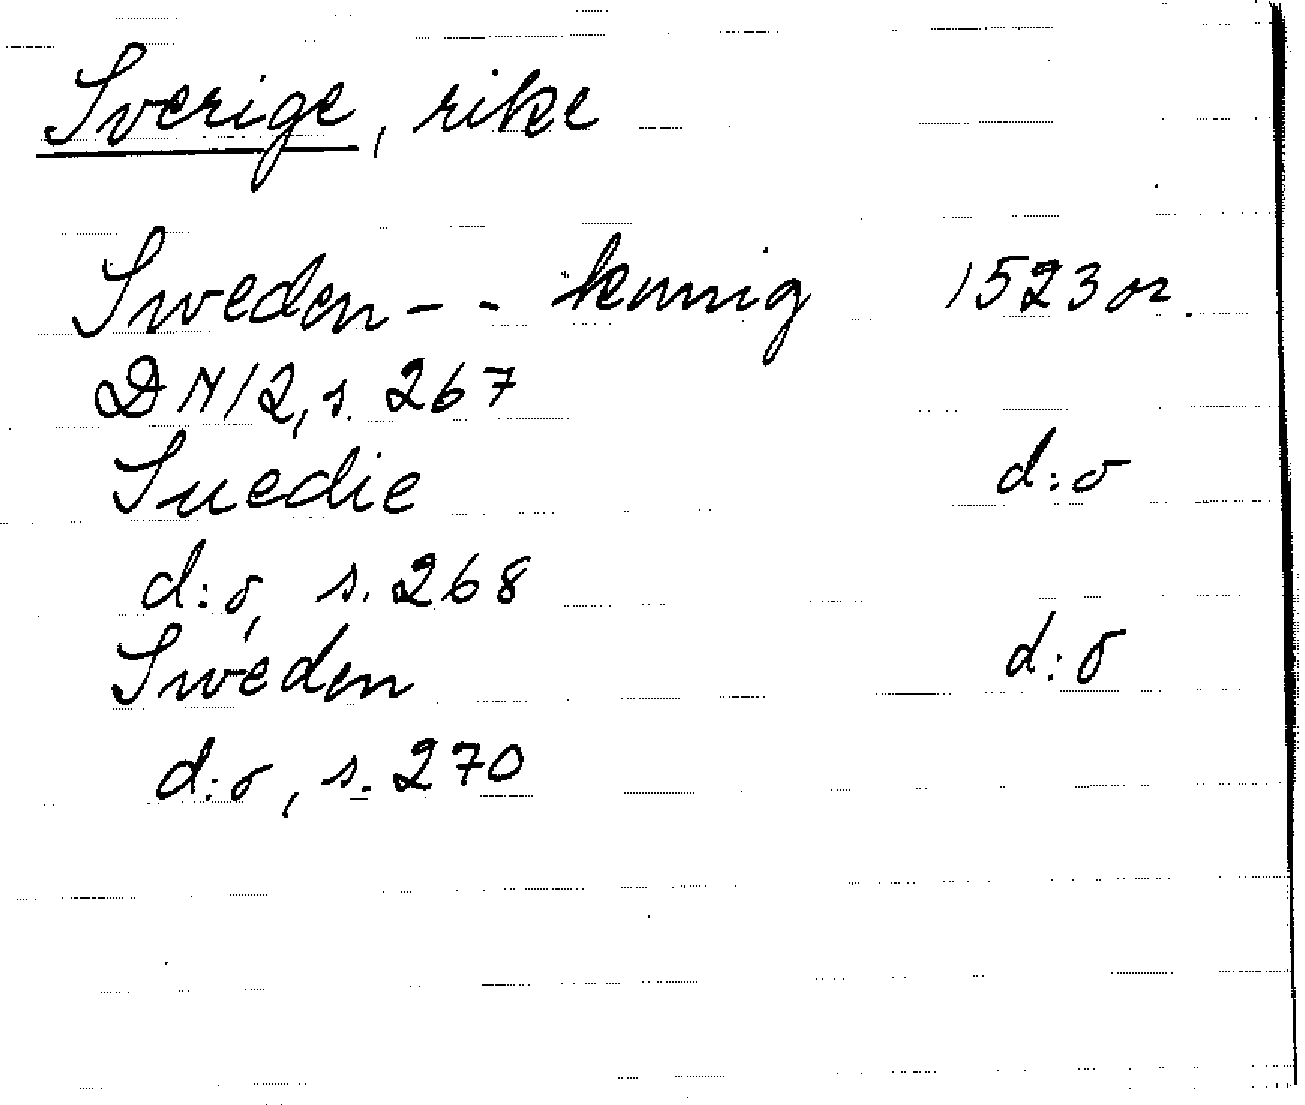 Sverige, rike
Sweden - - konnig 1523 or.
DN 12, s. 267
Suedie d:o
d:o, s. 268
Sweden d:o
d:o, s. 270